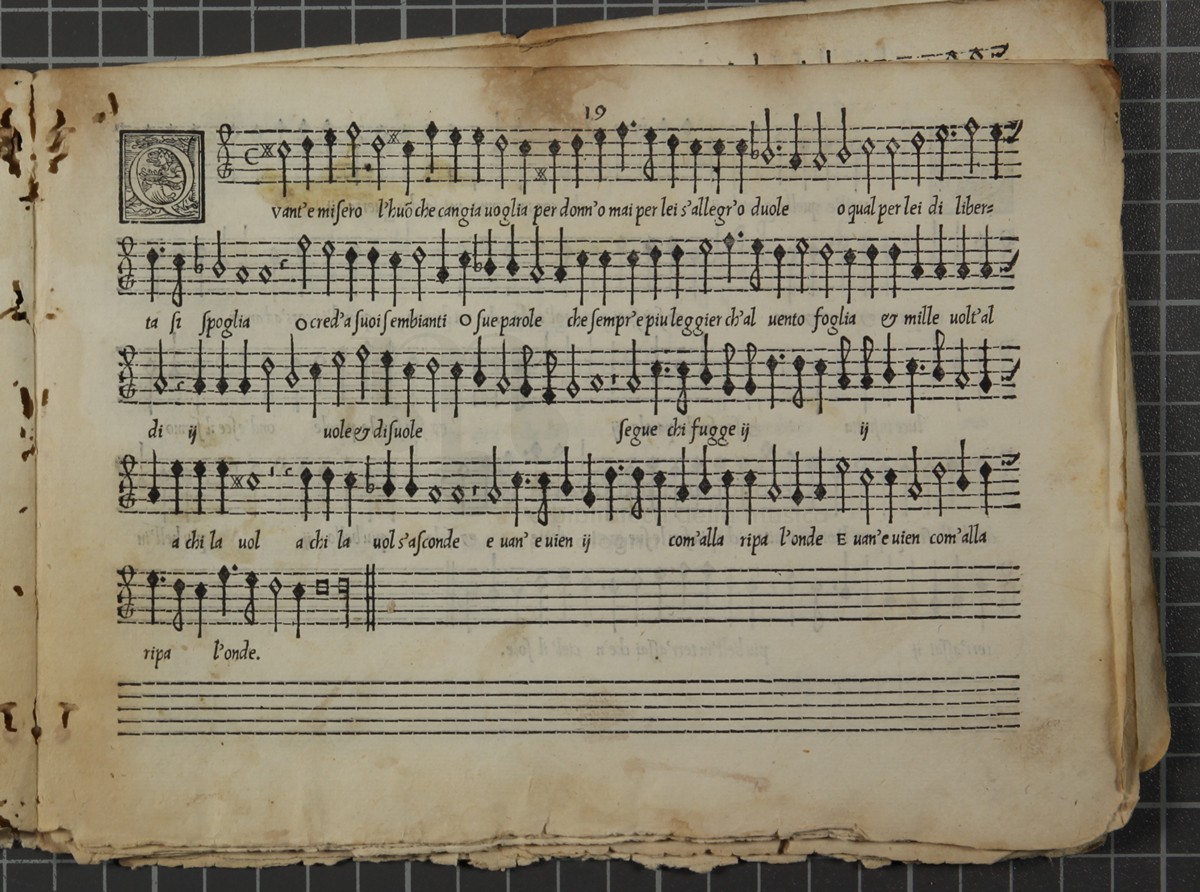 19
Q vant'e miſero l'huõ che cangia uoglia per donn'o mai per lei s'allegr'o duole o qual per lei di liber=
ta ſi ſpoglia O cred'a ſuoi ſembianti O ſue parole che ſempr'e piu leggier ch'al uento foglia & mille uolt'al
di ij uole & diſuole ſegue chi fugge ij ij
a chi la uol a chi la uol s'aſconde e uan'e uien ij com'alla ripa l'onde E uan'e uien com'alla
ripa l'onde.